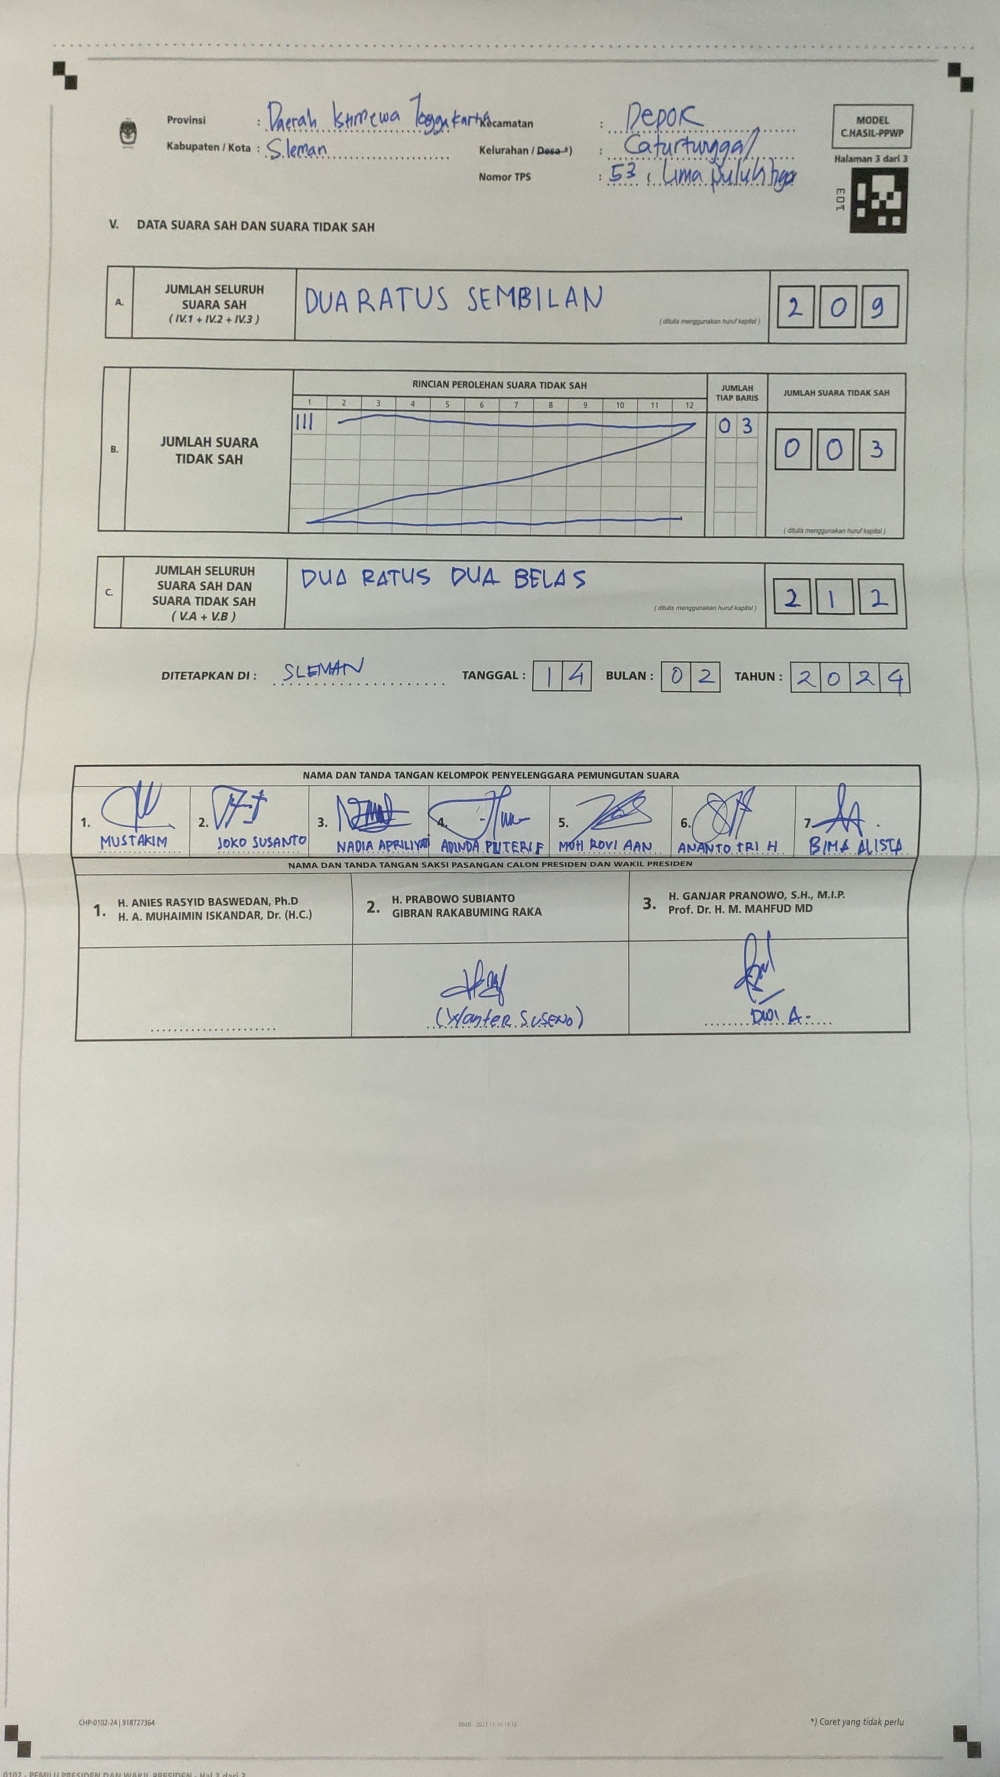 Provinsi : Daerah Istimewa Yogyakarta
Kabupaten / Kota : Sleman
Kecamatan : Depok
Kelurahan / Desa *) : Caturtunggal
Nomor TPS : 53, Lima puluh tiga
MODEL
C.HASIL-PPWP
Halaman 3 dari 3
103
V. DATA SUARA SAH DAN SUARA TIDAK SAH
A. JUMLAH SELURUH SUARA SAH ( IV.1 + IV.2 + IV.3 )
DUA RATUS SEMBILAN
( ditulis menggunakan huruf kapital )
2 0 9
B. JUMLAH SUARA TIDAK SAH
RINCIAN PEROLEHAN SUARA TIDAK SAH
1 2 3 4 5 6 7 8 9 10 11 12
III
JUMLAH TIAP BARIS
0 3
JUMLAH SUARA TIDAK SAH
0 0 3
( ditulis menggunakan huruf kapital )
C. JUMLAH SELURUH SUARA SAH DAN SUARA TIDAK SAH ( V.A + V.B )
DUA RATUS DUA BELAS
( ditulis menggunakan huruf kapital )
2 1 2
DITETAPKAN DI : SLEMAN TANGGAL : 14 BULAN : 02 TAHUN : 2024
NAMA DAN TANDA TANGAN KELOMPOK PENYELENGGARA PEMUNGUTAN SUARA
1. 2. 3. 4. 5. 6. 7.
MUSTAKIM JOKO SUSANTO NADIA APRILIYA ADINDA PUTERI F MUH ROVI AAN ANANTO TRI H BIMA ALISTA
NAMA DAN TANDA TANGAN SAKSI PASANGAN CALON PRESIDEN DAN WAKIL PRESIDEN
1. H. ANIES RASYID BASWEDAN, Ph.D
H. A. MUHAIMIN ISKANDAR, Dr. (H.C.)
2. H. PRABOWO SUBIANTO
GIBRAN RAKABUMING RAKA
3. H. GANJAR PRANOWO, S.H., M.I.P.
Prof. Dr. H. M. MAHFUD MD
(Wanter SUSENO)
DWI A-
CHP-0102-24 | 918727364
*) Coret yang tidak perlu
0102 - PEMILU PRESIDEN DAN WAKIL PRESIDEN - Hal 3 dari 3